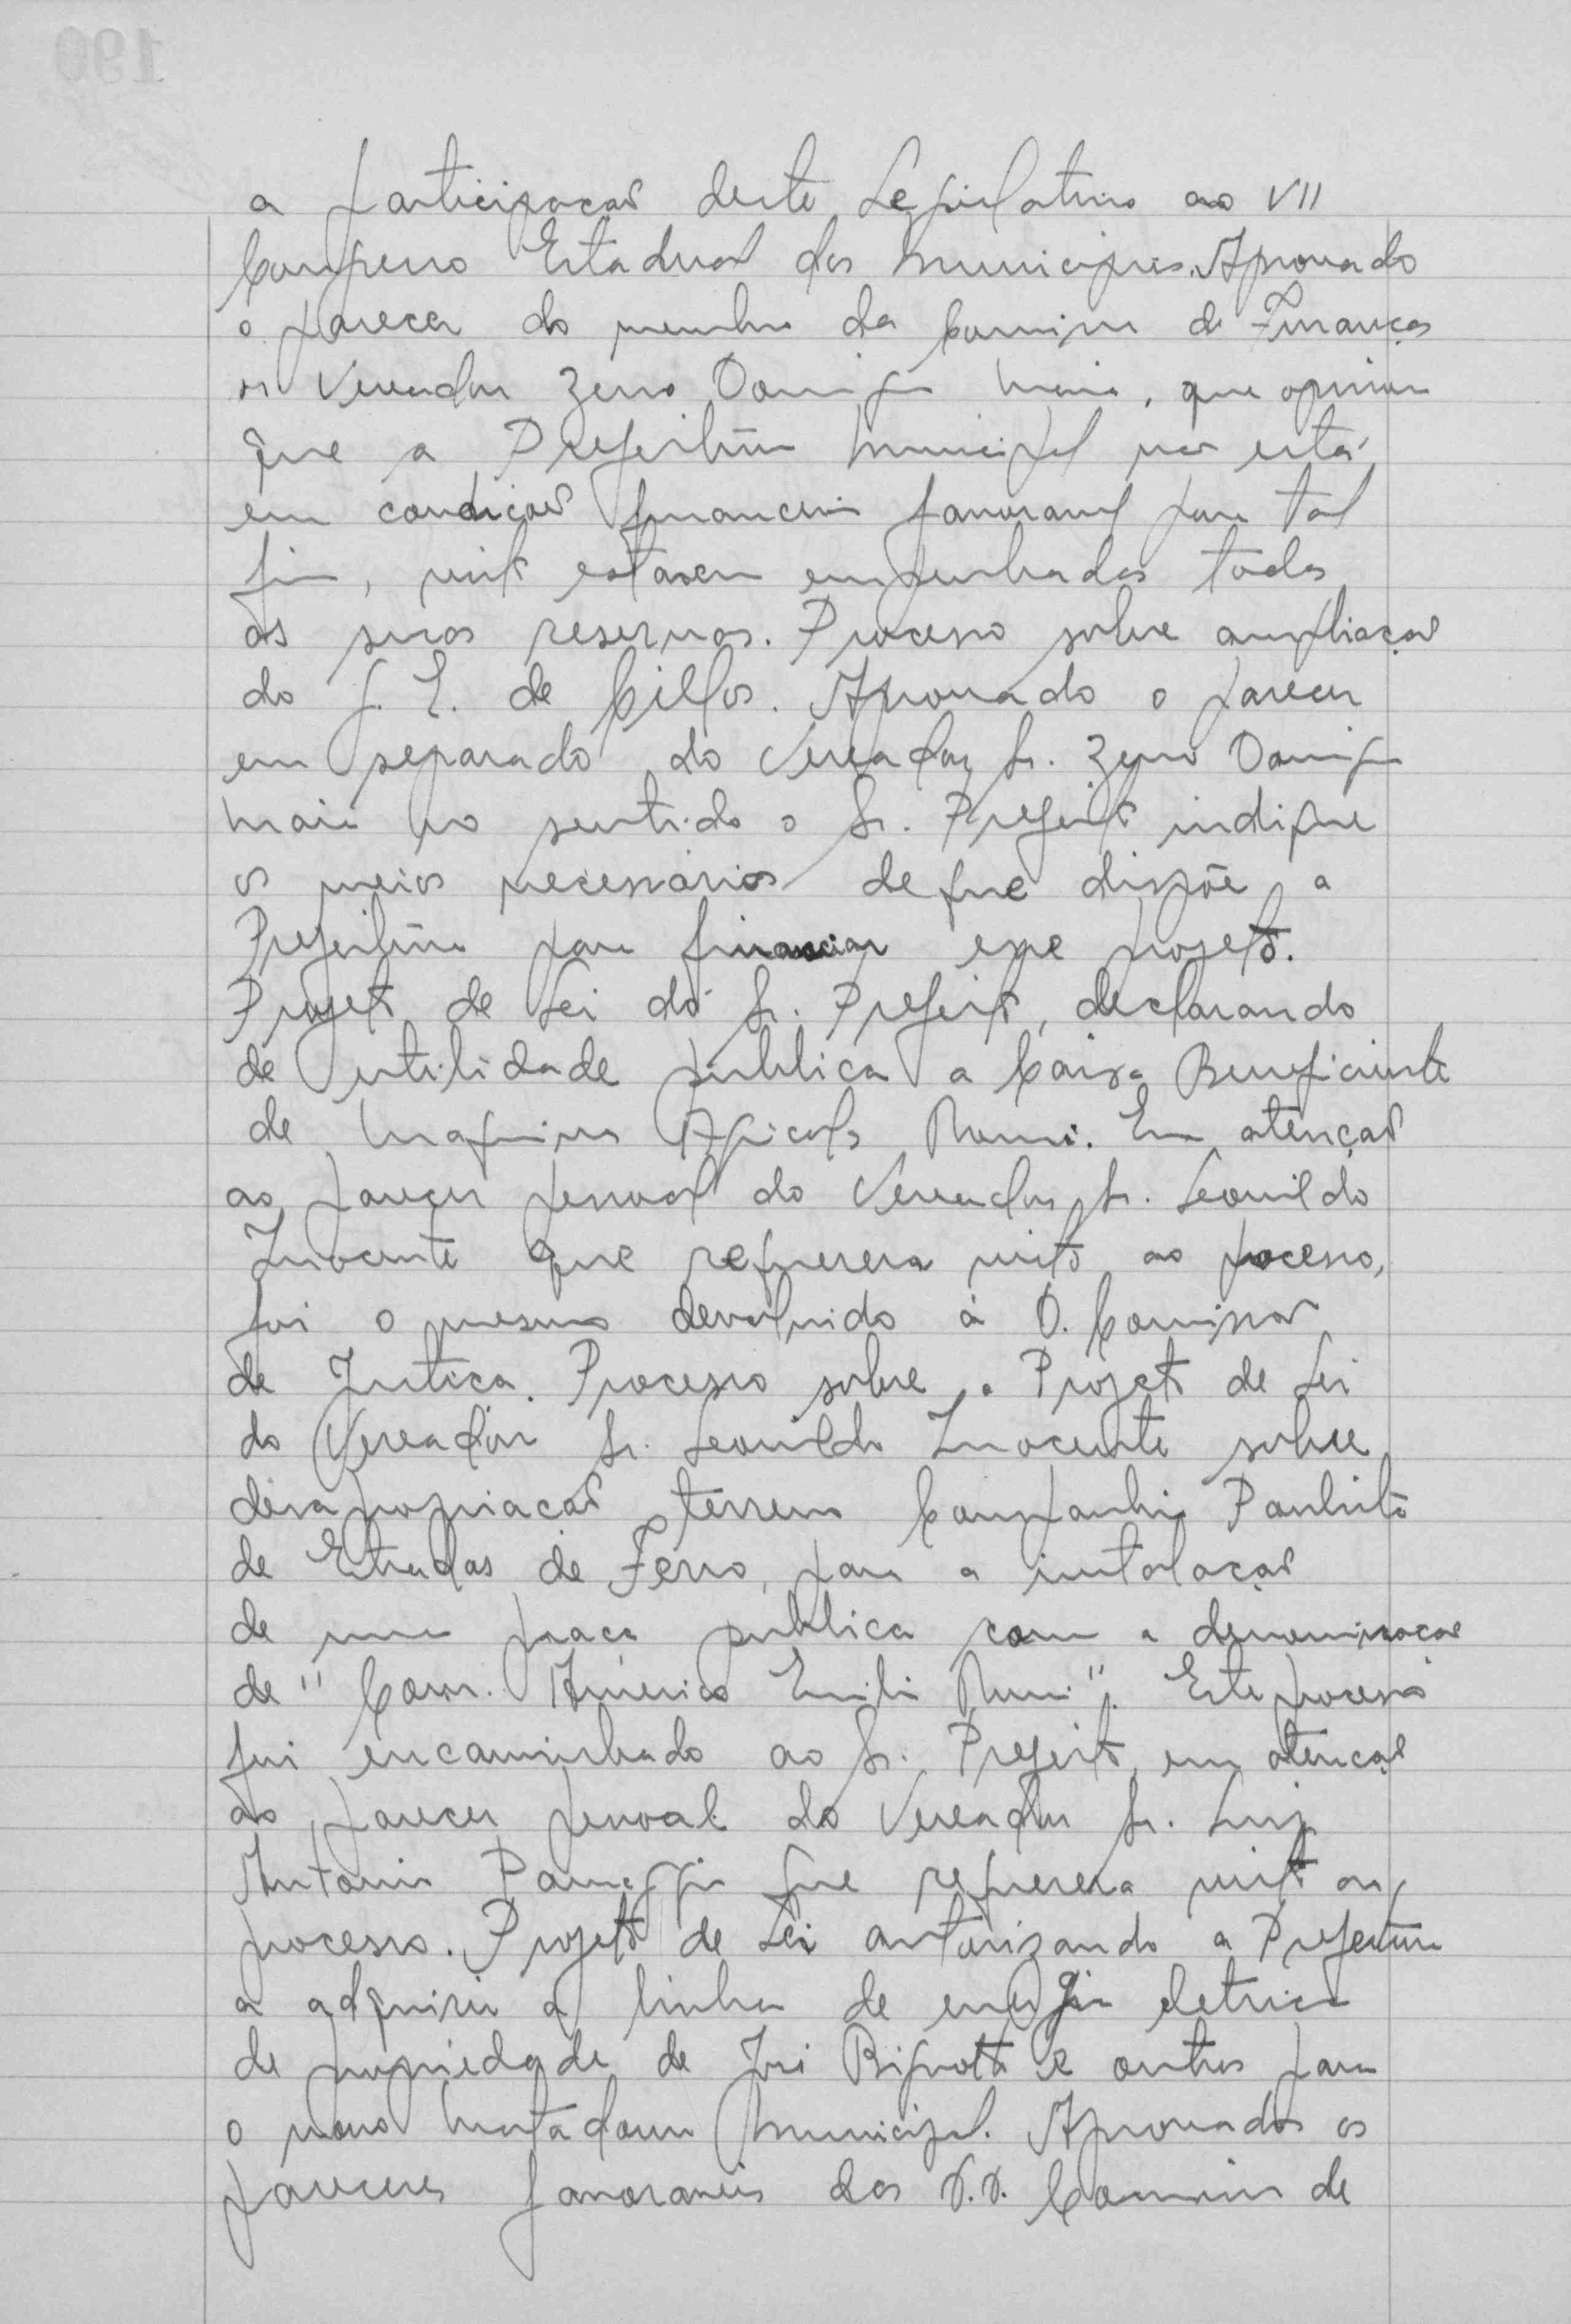 a participação deste Legislativo ao VII
Congresso Estadual dos Municipios. Aprovado
o parecer do membro da Comissão de Finanças
Vereador Zeno Domingos Maia, que opinou
que a Prefeitura Municipal não está
em condições financeira favoravel para tal
fim, visto estarem empenhadas todas
as suas reservas. Processo sobre ampliação
do G. E. de Cillos. Aprovado o parecer
em separado do Vereador Sr. Zeno Domingos
Maia no sentido o Sr. Prefeito indique
os meios necessarios de que dispõe a
Prefeitura para financiar esse projeto.
Projeto de Lei do Sr. Prefeito, declarando
de utilidade publica a Caixa Beneficiente
de Maquinas Agricolas Romi. Em atenção
ao parecer pessoal do Vereador Sr. Leonildo
Inocente que requerera visto ao processo,
foi o mesmo devolvido à D. Comissão
de Justiça. Processo sobre o Projeto de Lei
do Vereador Sr. Leonildo Inocente sobre
desapropriação terreno Companhia Paulista
de Estradas de Ferro, para a instalação
de uma praça publica com a denominação
de " Com. Américo Emilio Romi". Este processo
foi encaminhado ao Sr. Prefeito em atenção
ao parecer pessoal do Vereador Sr. Luiz
Antonio Panaggio que requerera visto ao
processo. Projeto de Lei autorizando a Prefeitura
a adquirir a linha de energia eletrica
de propriedade de José Bignotto e outros para
o novo Matadouro Municipal. Aprovados os
pareceres favoraveis das D.D. Comissões de